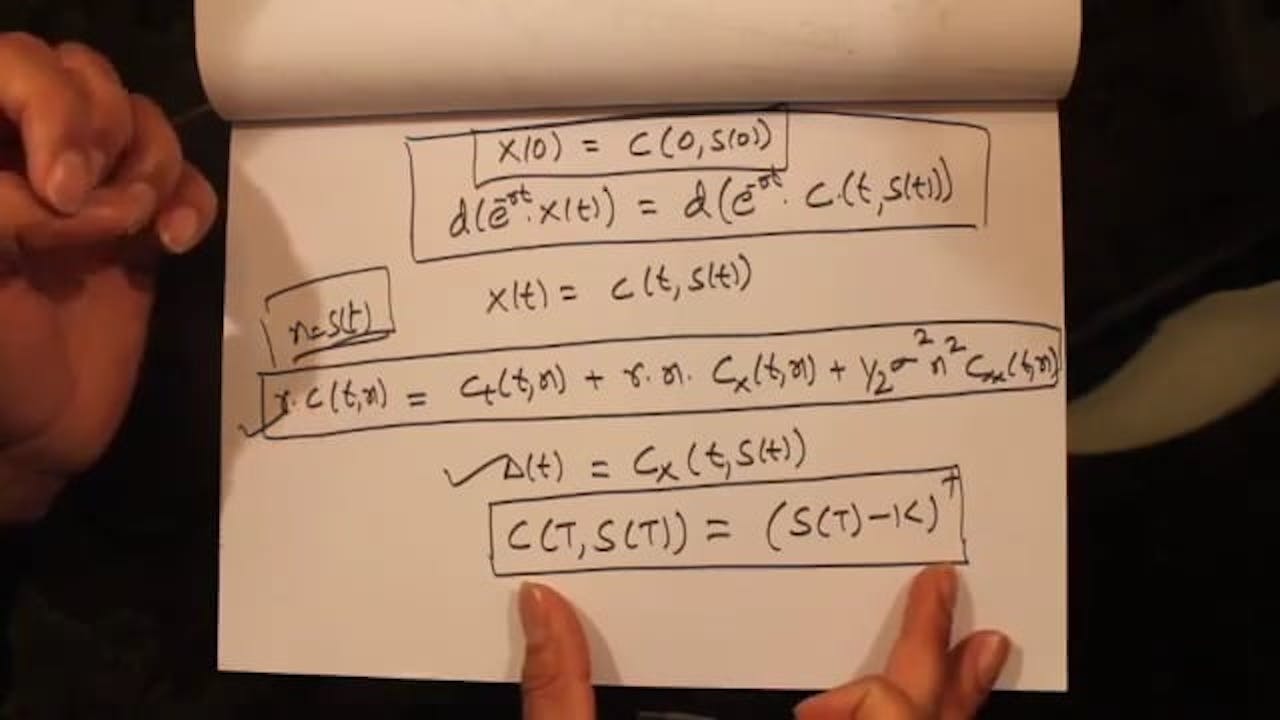 X(0) = C(0, S(0))
d(e^{-rt}. X(t)) = d(e^{-rt}. C.(t, S(t))
X(t) = C(t, S(t))
x=S(t)
r. C(t,x) = C_t(t,x) + r. x. C_x(t,x) + 1/2 σ^2 x^2 C_{xx}(t,x)
✓ Δ(t) = C_x(t, S(t))
C(T, S(T)) = (S(T)-K)^+